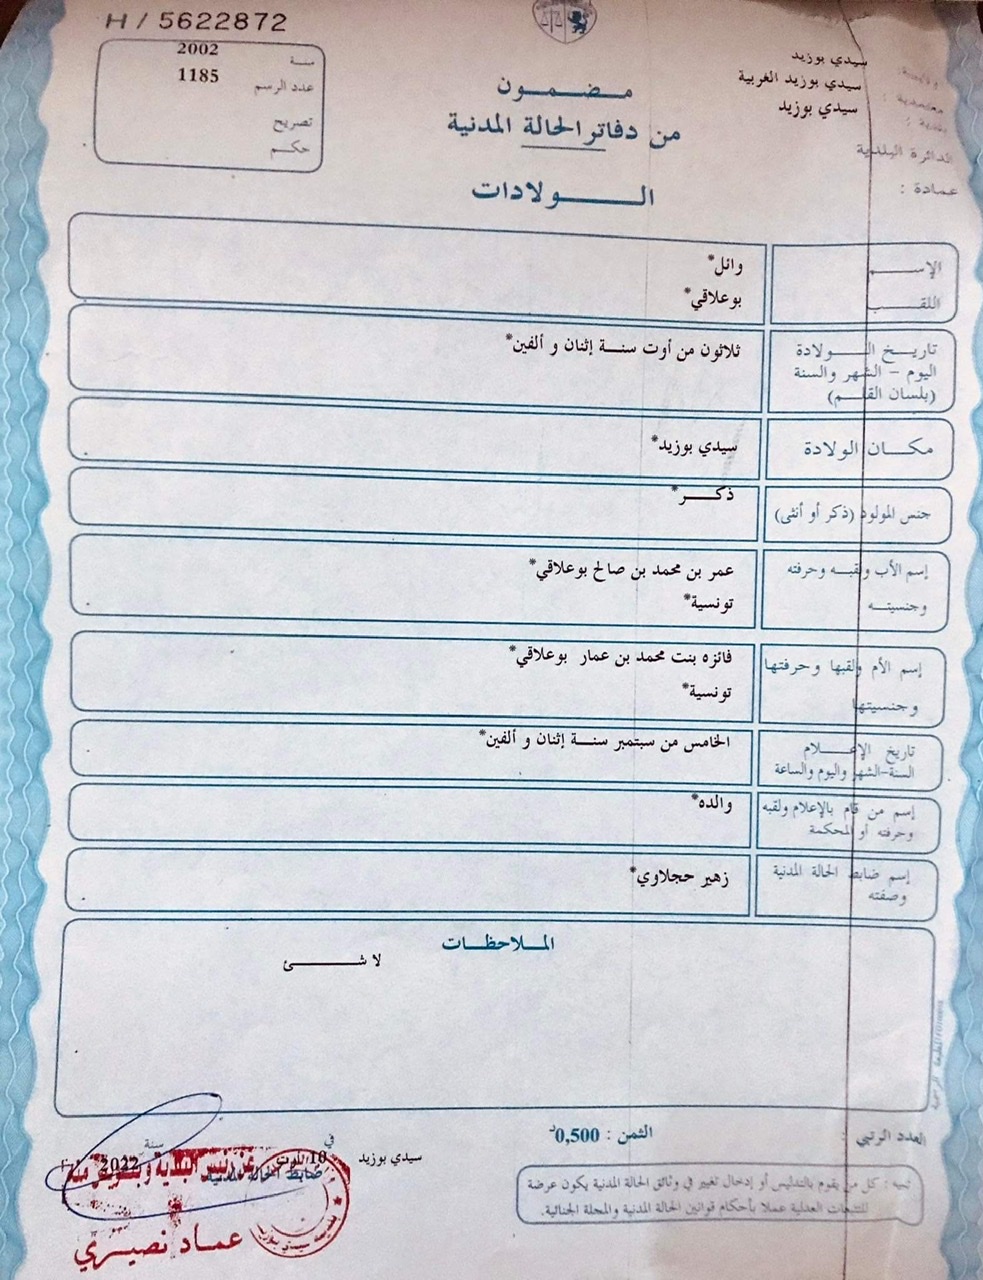 H / 5622872
سنة 2002
عدد الرسم 1185
تصريح
حكم
مضمون
من دفاتر الحالة المدنية
الولادات
ولاية : سيدي بوزيد
معتمدية : سيدي بوزيد الغربية
بلدية : سيدي بوزيد
الدائرة البلدية
عمادة :
الإسم وائل*
اللقب بوعلاقي*
تاريخ الولادة ثلاثون من أوت سنة إثنان و ألفين*
اليوم - الشهر والسنة
(بلسان القلم)
مكان الولادة سيدي بوزيد*
جنس المولود (ذكر أو أنثى) ذكر*
إسم الأب ولقبه وحرفته عمر بن محمد بن صالح بوعلاقي*
وجنسيته تونسية*
إسم الأم ولقبها وحرفتها فائزه بنت محمد بن عمار بوعلاقي*
وجنسيتها تونسية*
تاريخ الإعلام الخامس من سبتمبر سنة إثنان و ألفين*
السنة-الشهر واليوم والساعة
إسم من قام بالإعلام ولقبه والده*
وحرفته أو المحكمة
إسم ضابط الحالة المدنية زهير حجلاوي*
وصفته
الملاحظات
لا شئ
العدد الرتبي :
الثمن : 0,500د
سيدي بوزيد في 10 أوت سنة 2022
ضابط الحالة المدنية
عن رئيس البلدية وبتفويض منه
عماد نصيري
تنبيه : كل من يقوم بالتدليس أو إدخال تغيير في وثائق الحالة المدنية يكون عرضة
للتتبعات العدلية عملا بأحكام قوانين الحالة المدنية والمجلة الجنائية.